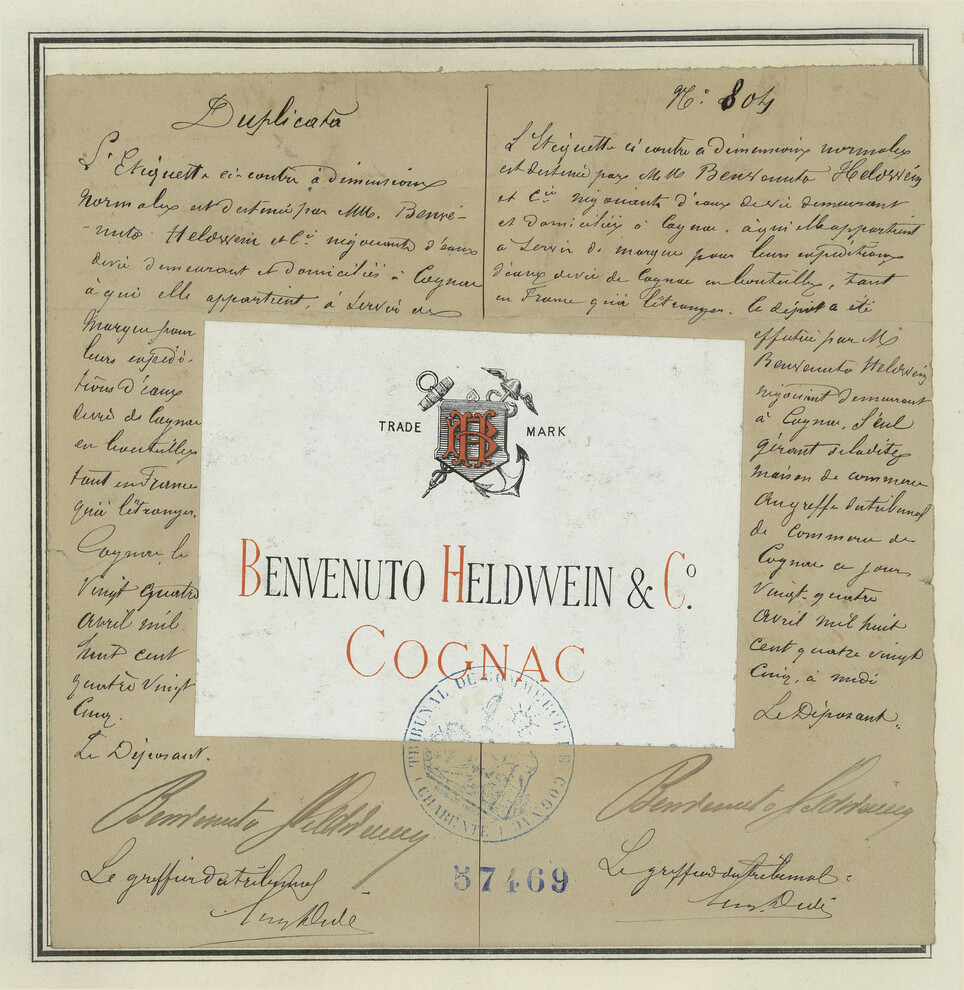 Duplicata
L'Etiquette ci-contre à dimensions
normales est destinée par MM. Benve-
-nuto Heldwein et Cie négociants d'eaux
devie demeurant et domiciliés à Cognac
à qui elle appartient, à servir de
marque pour
leurs expédi-
tions d'eaux
devie de Cognac
en bouteilles
tant en France
qu'à l'étranger.
Cognac le
Vingt quatre
avril mil
huit cent
quatre vingt
Cinq.
Le Déposant.
Benvenuto Heldwein
Le greffier du tribunal
No: 804
L'Etiquette ci contre a dimensions normales
est destinée par M.M. Benvenuto Heldwein
et Cie négociants d'eaux devie demeurant
et domiciliés à Cognac, à qui elle appartient
à servir de marque pour leurs expéditions
d'eaux devie de Cognac en bouteilles, tant
en France qu'à l'étranger. Le dépôt a été
effectué par M
Benvenuto Heldwein
négociant demeurant
à Cognac, Seul
gérant de ladite
maison de commerce
au greffe du tribunal
de Commerce de
Cognac ce jour
Vingt-quatre
avril mil huit
cent quatre vingt
Cinq, à midi
Le Déposant
Benvenuto Heldwein
Le greffier du tribunal
TRADE MARK
HB
BENVENUTO HELDWEIN & Co.
COGNAC
TRIBUNAL DE COMMERCE DE COGNAC
(CHARENTE)
57469